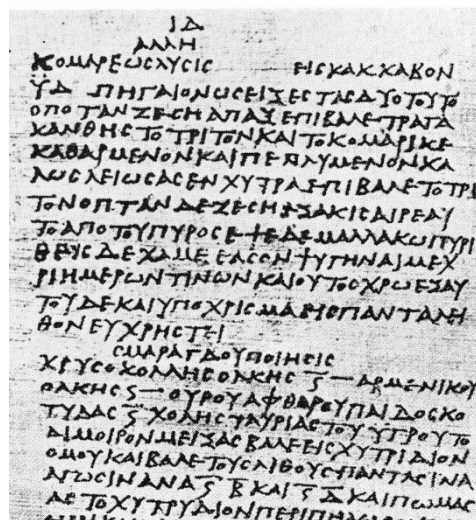 ΙΔ
ΑΛΛΗ
ΚΟΜΑΡΕΩϹ ΛΥϹΙϹ ΕΙϹ ΚΑΚΚΑΒΟΝ
ΫΔ ΠΗΓΑΙΟΝ ΩϹΕΙ ΞΕϹΤΑϹ ΔΥΟ ΤΟΥΤΟ
ΟΠΟΤΑΝ ΖΕϹΗ ΑΠΑΞ ΕΠΙΒΑΛΕ ΤΡΑΓΑ
ΚΑΝΘΗϹ ΤΟ ΤΡΙΤΟΝ ΚΑΙ ΤΟ ΚΟΜΑΡΙ ΚΕ
ΚΑΘΑΡΜΕΝΟΝ ΚΑΙ ΠΕΠΛΥΜΕΝΟΝ ΚΑ
ΛΩϹ ΛΕΙΩϹΑϹ ΕΝ ΧΥΤΡΑ ΕΠΙΒΑΛΕ ΤΟ ΤΡΙ
ΤΟΝ ΟΠΤΑΝ ΔΕ ΖΕϹΗ ΕΞΑΚΙϹ ΑΙΡΕ ΑΥ
ΤΟ ΑΠΟ ΤΟΥ ΠΥΡΟϹ ΕΨΕ ΔΕ ΜΑΛΑΚΩ ΠΥΡΙ
ΘΕΥϹ ΔΕ ΧΑΜΕ ΕΑϹΟΝ ΨΥΓΗΝΑΙ ΜΕΧ
ΡΙ ΗΜΕΡΩΝ ΤΙΝΩΝ ΚΑΙ ΟΥΤΟϹ ΧΡΩ ΕΞ ΑΥ
ΤΟΥ ΔΕ ΚΑΙ ΥΠΟΧΡΙϹΜΑ ΕΙϹ ΠΑΝΤΑ ΛΗ
ΘΟΝ ΕΥΧΡΗϹΤΕΙ
ϹΜΑΡΑΓΔΟΥ ΠΟΙΗϹΙϹ
ΧΡΥϹΟΚΟΛΛΗϹ ΟΛΚΗϹ Ϛ — ΑΡΜΕΝΙΚΟΥ
ΟΛΚΗϹ Ϛ — ΟΥΡΟΥ ΑΦΘΑΡΟΥ ΠΑΙΔΟϹ ΚΟ
ΤΥΛΑϹ Ϛ ΧΟΛΗϹ ΤΑΥΡΙΑϹ ΤΟΥ ΥΓΡΟΥ ΤΟ
ΔΙΜΟΙΡΟΝ ΜΕΙΞΑϹ ΒΑΛΕ ΕΙϹ ΧΥΤΡΙΔΙΟΝ
ΟΜΟΥ ΚΑΙ ΒΑΛΕ ΤΟΥϹ ΛΙΘΟΥϹ ΠΑΝΤΑϹ ΙΝΑ
ΑΓΩϹΙΝ ΑΝΑ Ϛ Β ΚΑΙ Ϛ Δ ΚΑΙ ΠΩΜΑϹ
ΑϹ ΤΟ ΧΥΤΡΥΔΙΟΝ ΠΕΡΙΠΗΛΩϹΟΝ